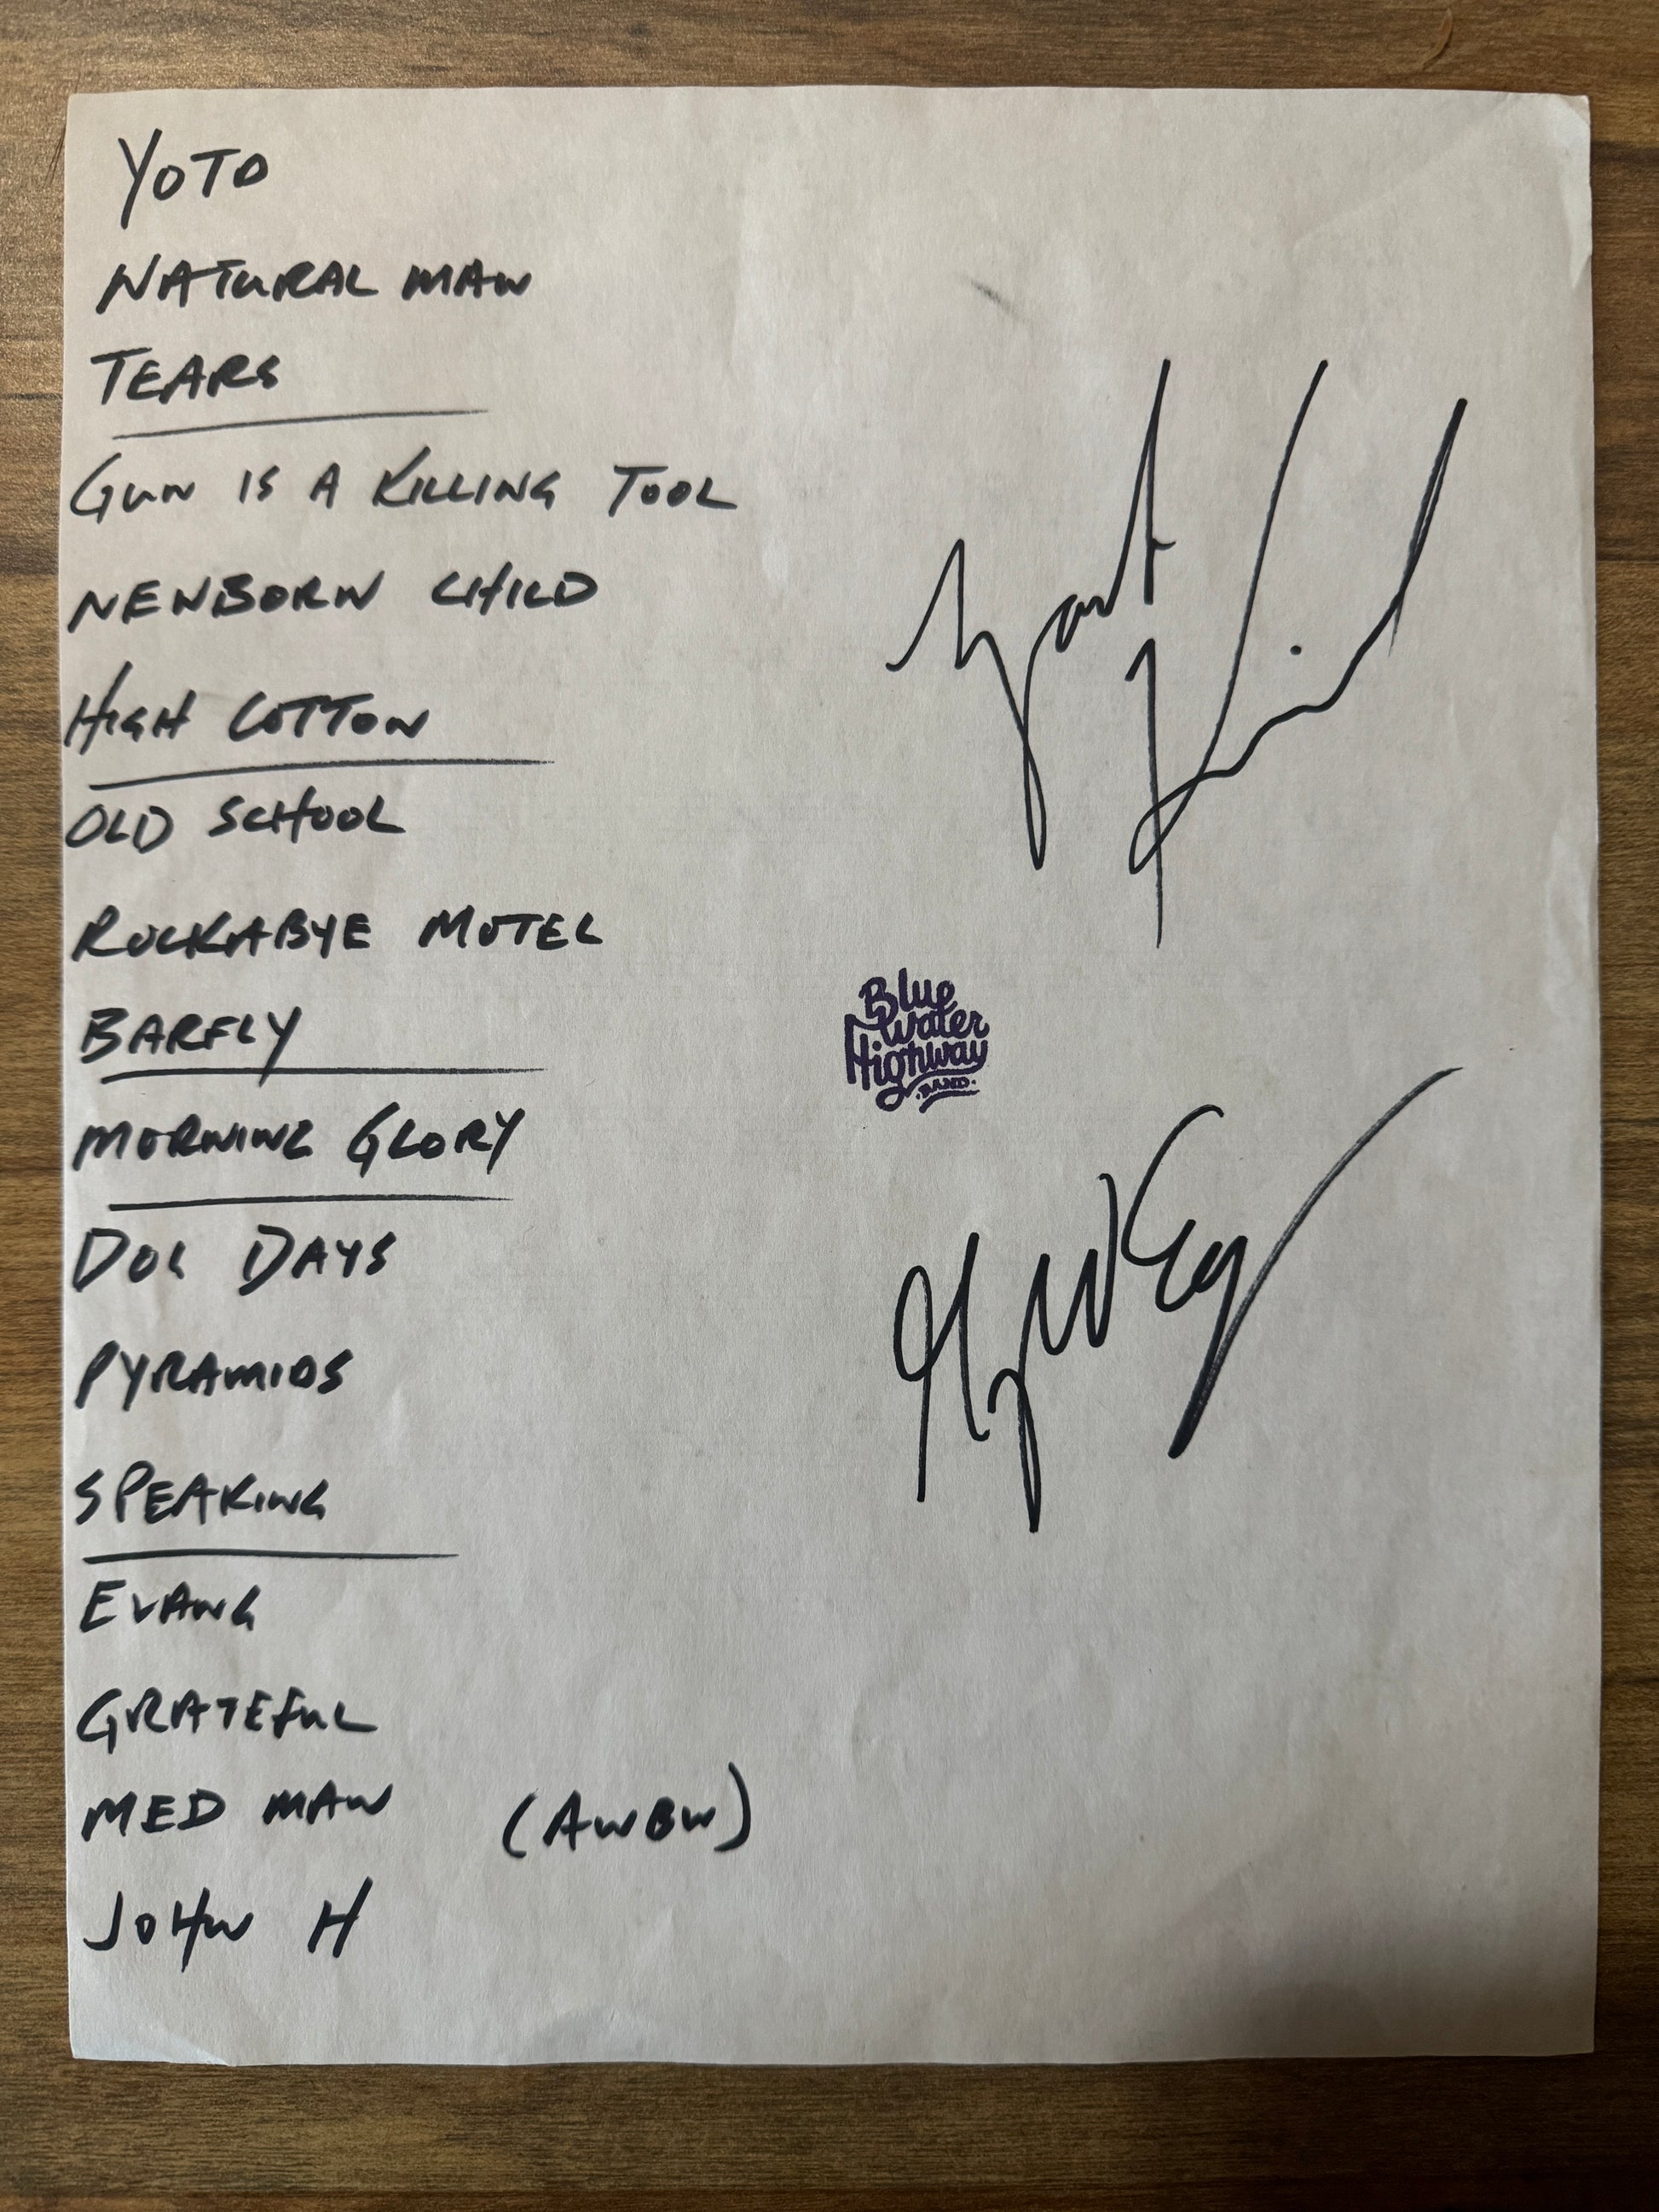 YOTO
NATURAL MAN
TEARS
GUN IS A KILLING TOOL
NEWBORN CHILD
HIGH COTTON
OLD SCHOOL
ROCKABYE MOTEL
BARFLY
MORNING GLORY
DOG DAYS
PYRAMIDS
SPEAKING
EVANG
GRATEFUL
MED MAN (AWBW)
JOHN H
Blue
Water
Highway
BAND